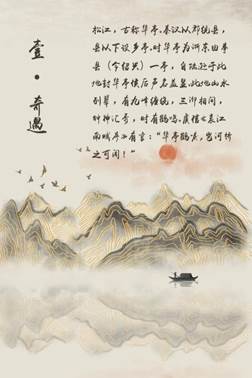 壹·奇遇
松江，古称华亭，秦汉以郡统县，
县以下设乡亭。时华亭为浙东由拳
县（今绍兴）一亭，自陆逊于此
地封华亭侯后声名益显。此地山水
别翠，有九峰缠绕，三泖相间，
钟神汇秀，时有鹤鸣，庾信《哀江
南赋序》有言：“华亭鹤唳，岂河桥
之可闻！”